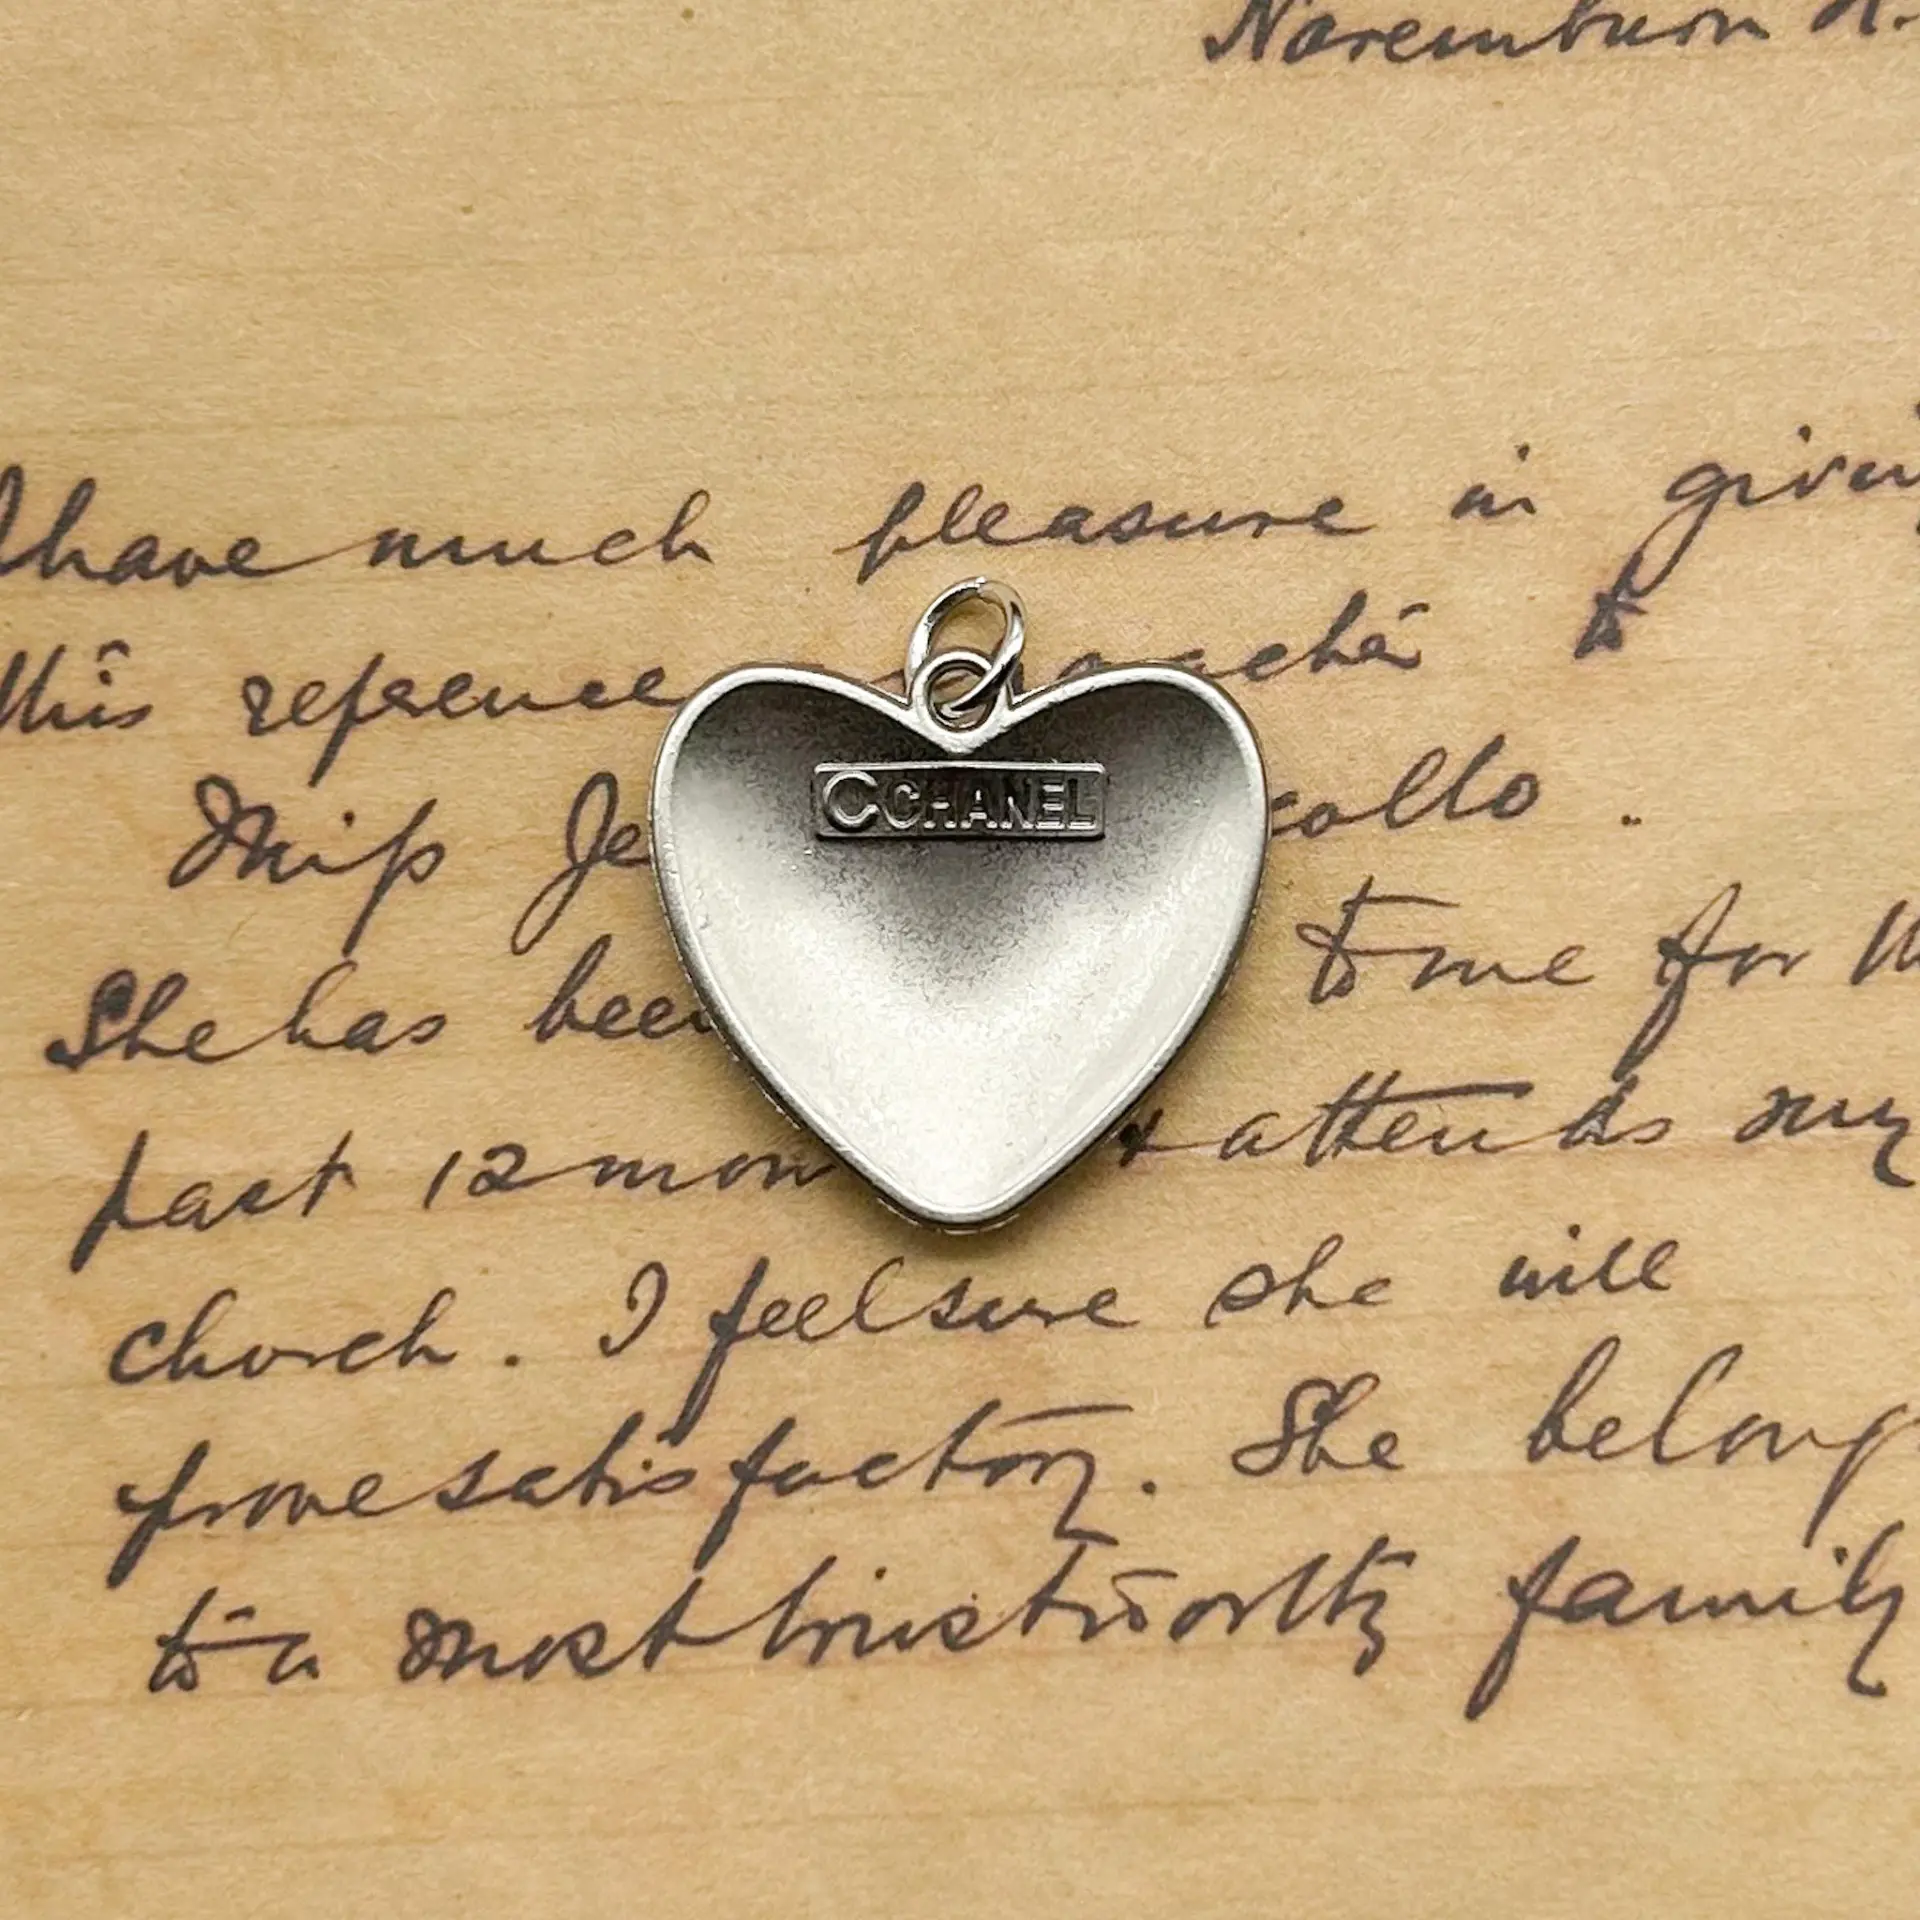 Naremburn
I have much pleasure in giving
this reference
Miss Je collo .
She has been to me for
past 12 mon & attends my
church . I feel sure she will
prove satisfactory . She belong
to a most trustworthy family
C CHANEL